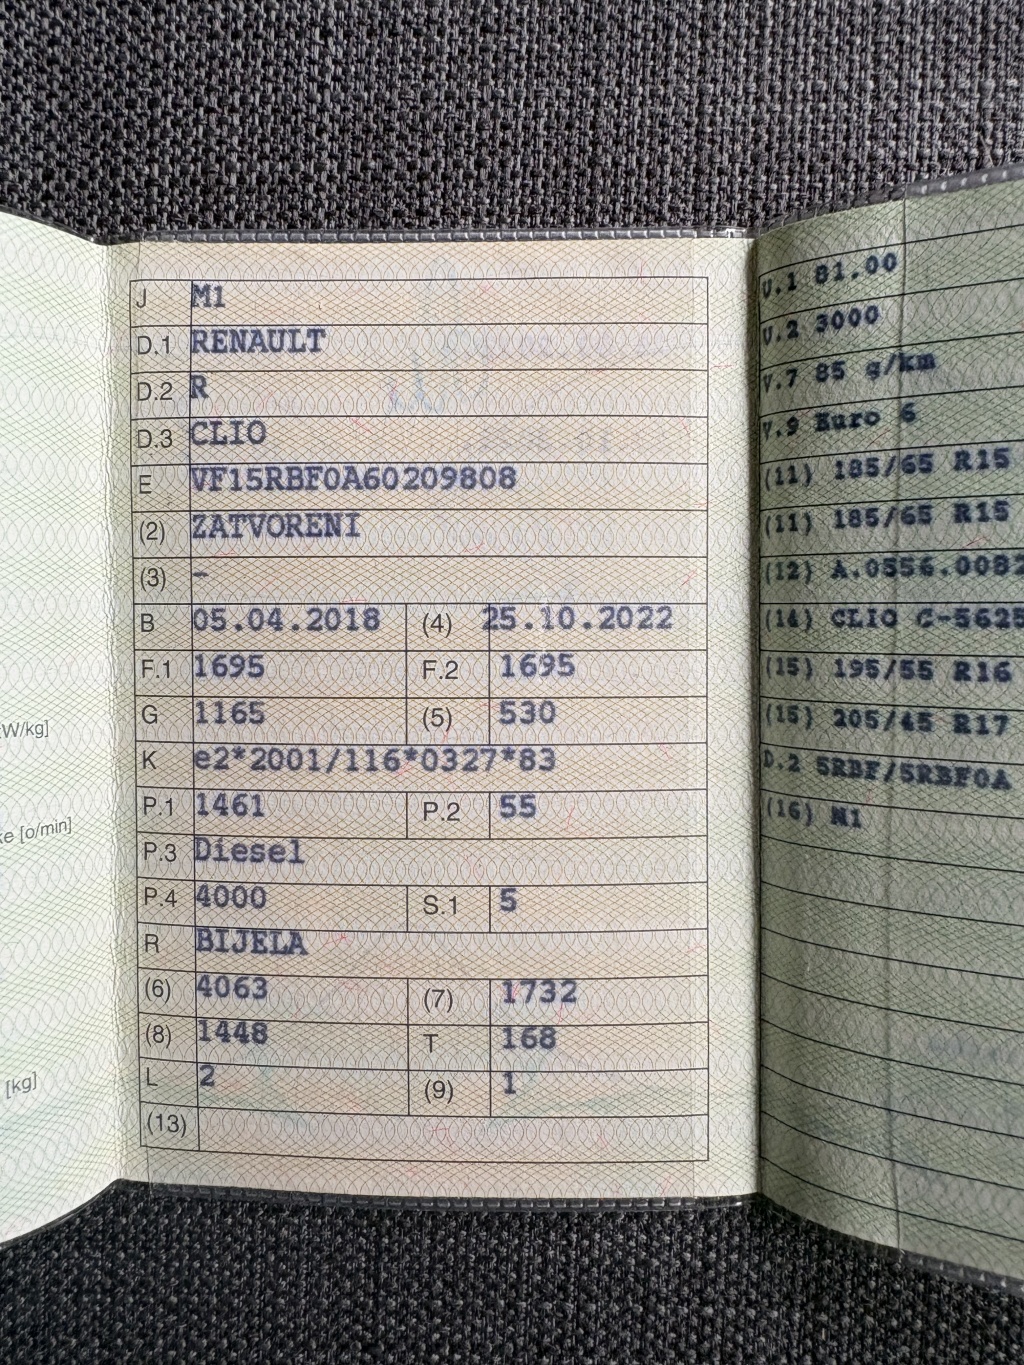 W/kg]
ke [o/min]
[kg]
J M1
D.1 RENAULT
D.2 R
D.3 CLIO
E VF15RBF0A60209808
(2) ZATVORENI
(3) -
B 05.04.2018 (4) 25.10.2022
F.1 1695 F.2 1695
G 1165 (5) 530
K e2*2001/116*0327*83
P.1 1461 P.2 55
P.3 Diesel
P.4 4000 S.1 5
R BIJELA
(6) 4063 (7) 1732
(8) 1448 T 168
L 2 (9) 1
(13)
U.1 81.00
U.2 3000
V.7 85 g/km
V.9 Euro 6
(11) 185/65 R15
(11) 185/65 R15
(12) A.0556.0082
(14) CLIO C-5625
(15) 195/55 R16
(15) 205/45 R17
D.2 5RBF/5RBF0A
(16) M1